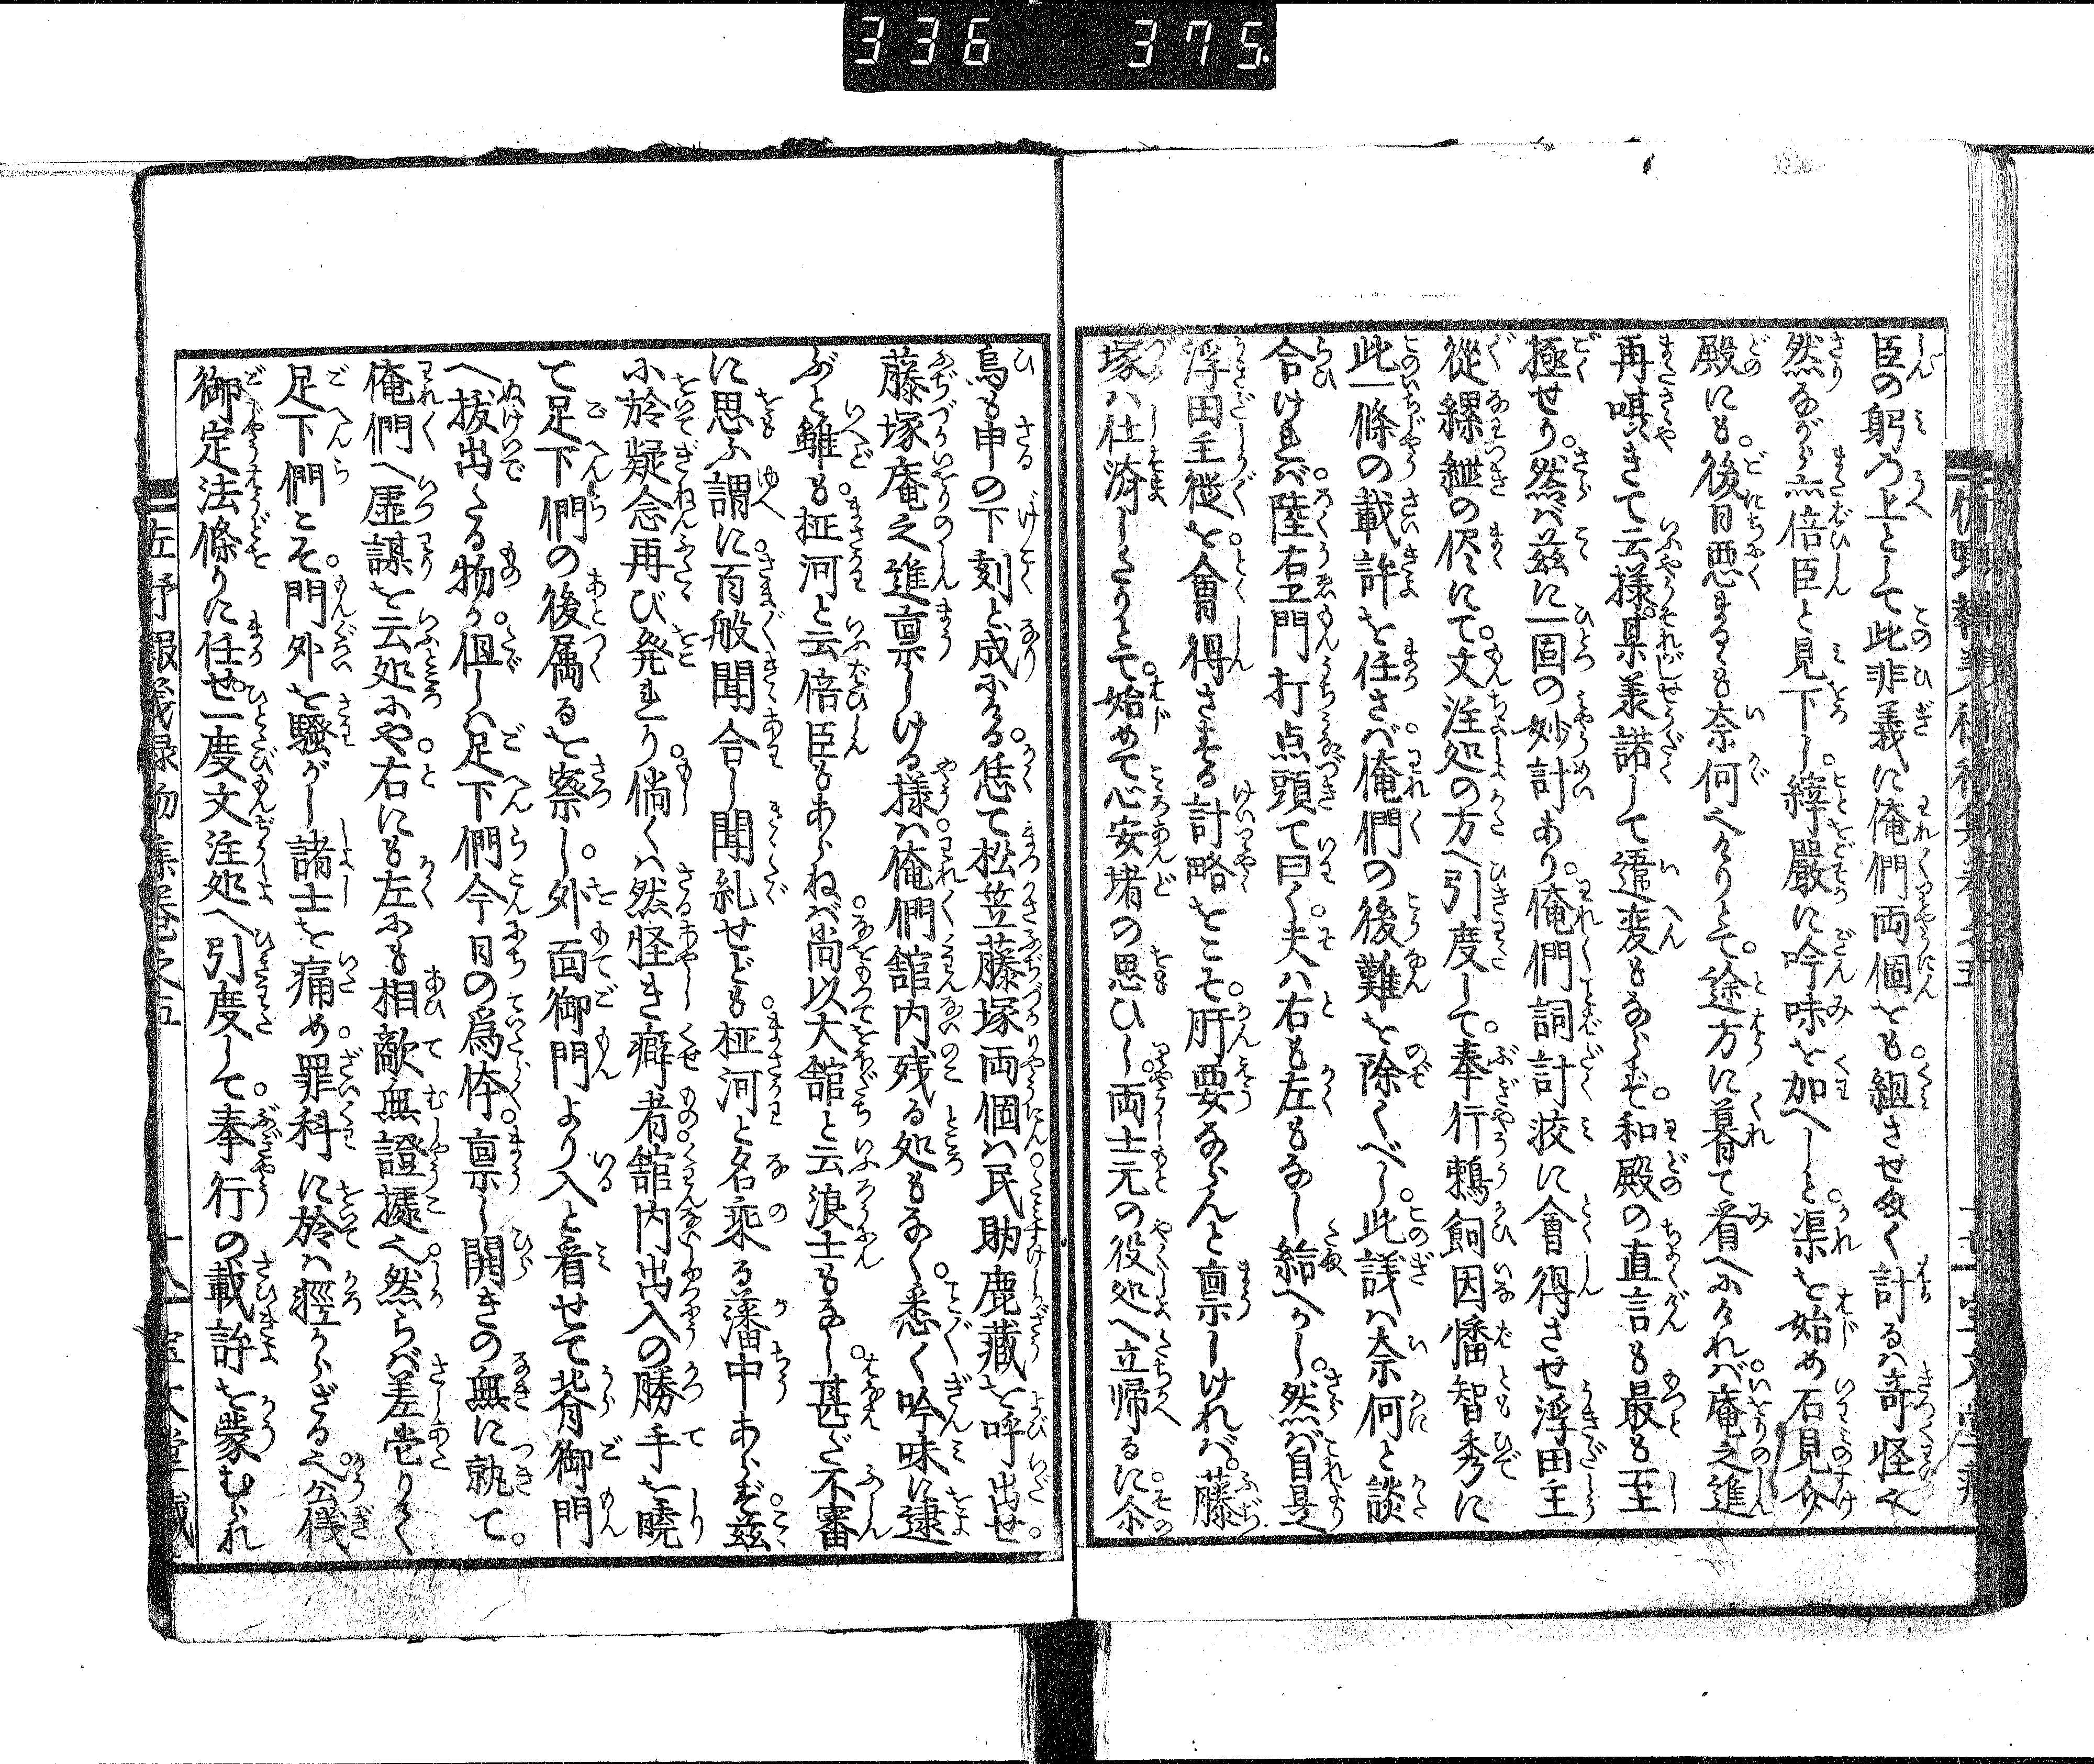 336 375.
臣の躬の上として此非義に俺們両個をも組させ多く計るハ奇怪也
然ながら亦倍臣と見下し。縡嚴に吟味を加へしと。渠を始め石見介
殿にも。後日悪まるも奈何也けりとて。途方に暮て看へにけれバ。庵之進
再㗳きて云様。某羕諾して違変もならず。和殿の直言も最も至
極せり。然バ茲に一固の妙計あり。俺們詞計挍に會得させ浮田主
從縲紲の侭にて。文注処の方へ引度して。奉行鵜飼因幡智秀に
此一條の載許を任さバ。俺們の後難を除くべし。此議ハ奈何と談
合けれバ。陸右エ門打点頭て曰く。夫ハ右も左もなし給へかし。然バ自是
浮田主從を。會得さする計略をこそ。肝要ならんと禀しけれバ。藤
塚ハ仕済したりとて。始めて心安堵の思ひし。両士元の役処へ立帰るに。余
烏も申の下刻と成にける。恁て松笠藤塚両個ハ。民助鹿藏を呼出せ。
藤塚庵之進禀しける様ハ。俺們舘内残る処もなく。悉く吟味に逮
ぶと雖も。柾河と云倍臣もあらねバ。尚以大舘と云浪士もなし。甚だ不審
に思ふ謂に。百般聞合し聞糺せども。柾河と名乗る藩中あらず。茲
に於疑念再び発れり。倘くハ然怪き癖者。舘内出入の勝手を曉
て足下們の後属るを察し。外面御門より入と看せて背御門
へ拔出たる物か。但しハ足下們今日の爲体。禀し開きの無に執て。
俺們へ虚謀を云処にや。右にも左にも相敵無證據也。然らバ差壱りなく
足下們こそ。門外を騒がし諸士を痛め。罪科に於ハ輕からざる也。公儀
御定法條りに任せ。一度文注処へ引度して。奉行の載許を蒙むられ